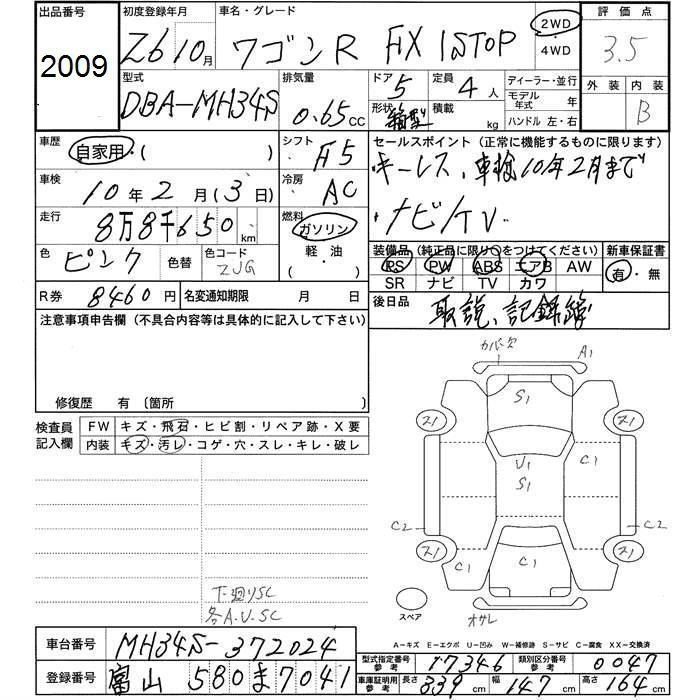 出品番号 初度登録年月 車名・グレード 評価点
2009 26 10月 ワゴンR FX 1STOP 2WD ・ 4WD 3.5
型式 排気量 ドア 定員 ディーラー・並行 外装 内装
DBA-MH34S 0.65cc 5 4人 モデル年式 年 B
形状 箱型 積載 kg ハンドル 左・右
車歴 自家用・( ) シフト F5 セールスポイント (正常に機能するものに限ります)
車検 10年2月(3日) 冷房 AC キーレス、車検10年2月まで
走行 8万8千650km 燃料 ガソリン ・ナビ/TV
軽油 ・( )
色 ピンク 色替 色コード ZJG
装備品(純正品に限り○をつけてください) 新車保証書
PS PW ABS エアB AW 有・無
SR ナビ TV カワ
R券 8460円 名変通知期限 月 日 後日品 取説、記録簿
注意事項申告欄 (不具合内容等は具体的に記入して下さい)
修復歴 有 〔箇所
検査員記入欄 FW キズ・飛石・ヒビ割・リペア跡・X要
内装 キズ・汚レ・コゲ・穴・スレ・キレ・破レ
カバー欠 A1
S1
スリ スリ
U1 C1
S1
C2 C2
スリ スリ
C1 C1
スペア オサレ
下廻りSC
各A.U.SC
A-キズ E-エクボ U-凹み W-補修跡 S-サビ C-腐食 XX-交換済
車台番号 MH34S-372024
型式指定番号 参考 17346 類別区分番号 参考 0047
登録番号 富山 580 ま 7041
車庫証明用 参考 長さ 339cm 幅 147cm 高さ 164cm